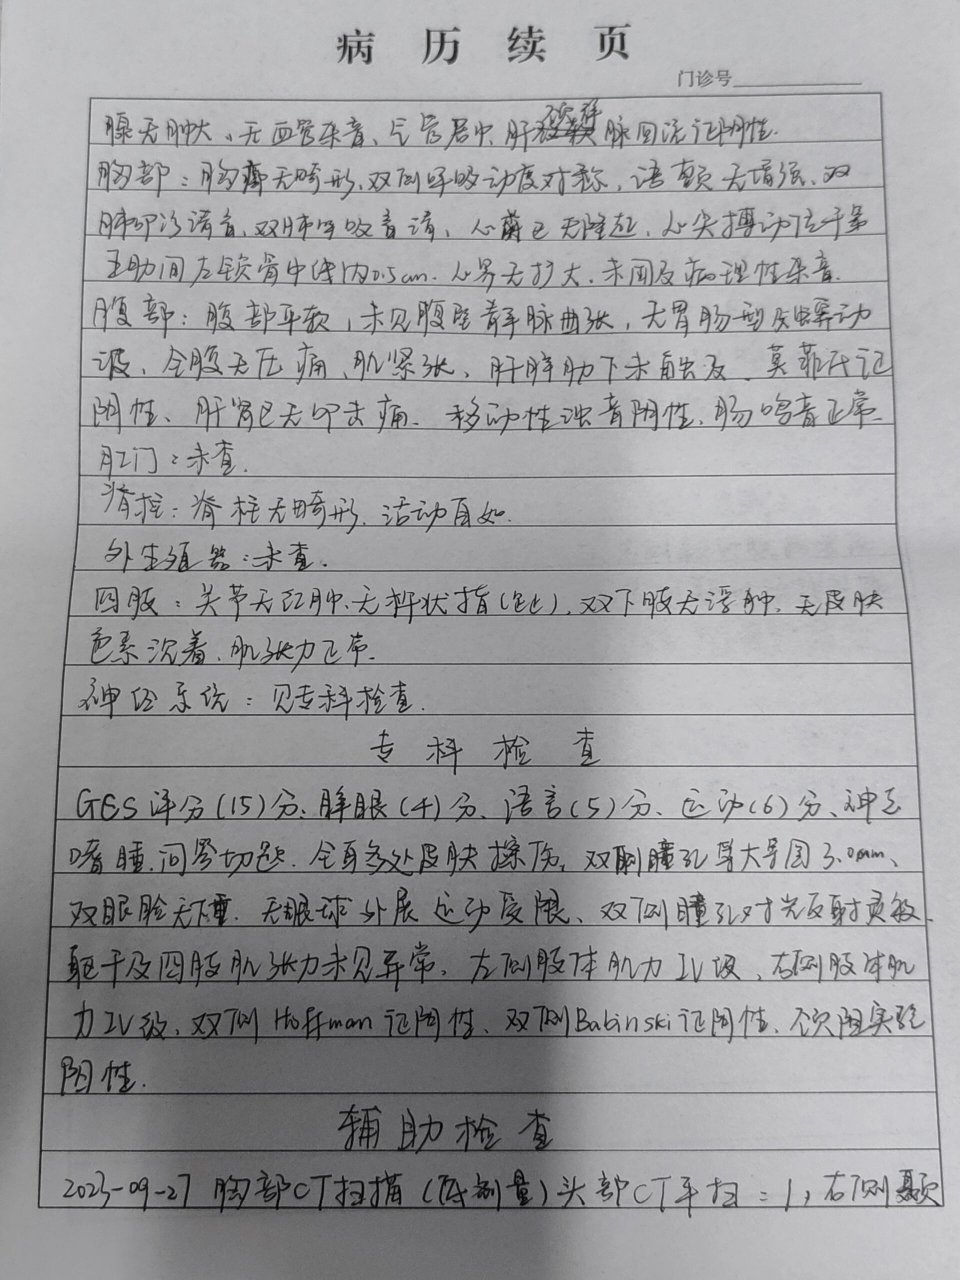 病历续页
门诊号
腺无肿大、无血管杂音、气管居中、肝颈静脉回流征阴性.
胸部：胸廓无畸形,双侧呼吸动度对称，语颤无增强、双
肺叩诊清音,双肺呼吸音清、心前区无隆起、心尖搏动位于第
五肋间左锁骨中线内0.5cm.心界无扩大.未闻及病理性杂音.
腹部：腹部平软，未见腹壁静脉曲张，无胃肠型及蠕动
波、全腹无压痛、肌紧张、肝脾肋下未触及.莫菲氏征
阴性、肝肾区无叩击痛.移动性浊音阴性、肠鸣音正常.
肛门：未查.
脊柱：脊柱无畸形.活动自如.
外生殖器：未查.
四肢：关节无红肿、无杵状指(趾),双下肢无浮肿.无皮肤
色素沉着、肌张力正常.
神经系统：见专科检查.
专科检查
GCS评分(15)分：睁眼(4)分、语言(5)分、运动(6)分、神志
嗜睡.问答切题.全身多处皮肤擦伤，双侧瞳孔等大等圆3.0mm、
双眼睑无下垂.无眼球外展运动受限、双侧瞳孔对光反射灵敏.
躯干及四肢肌张力未见异常.左侧肢体肌力IV级、右侧肢体肌
力IV级、双侧Hoffman征阴性、双侧Babinski征阴性、颈阻实验
阴性.
辅助检查
2023-09-27 胸部CT扫描(低剂量)头部CT平扫：1,右侧颞